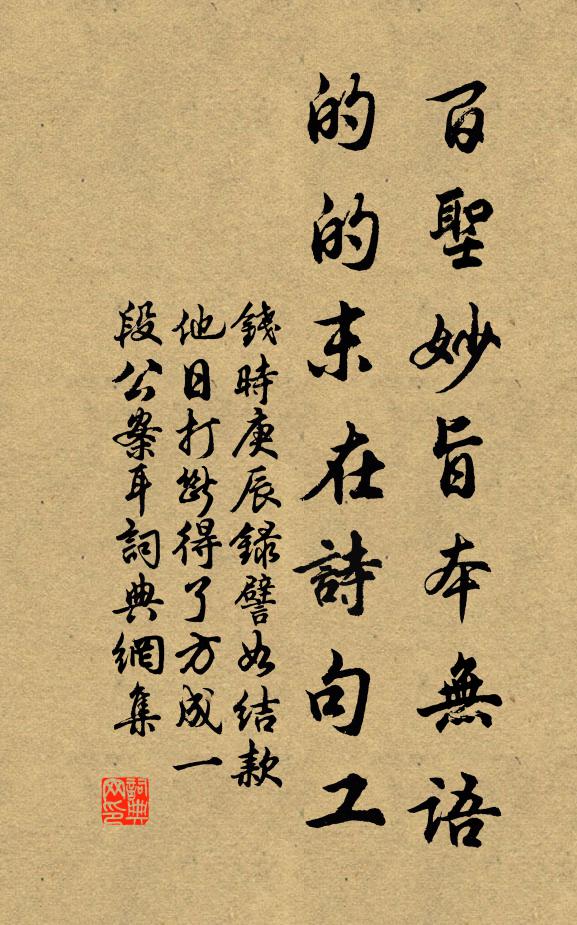 百聖妙旨本無語
的的未在詩句工
錢時庚辰録譬如結款
他日打斷得了方成一
段公案耳詞典網集
詞典网印